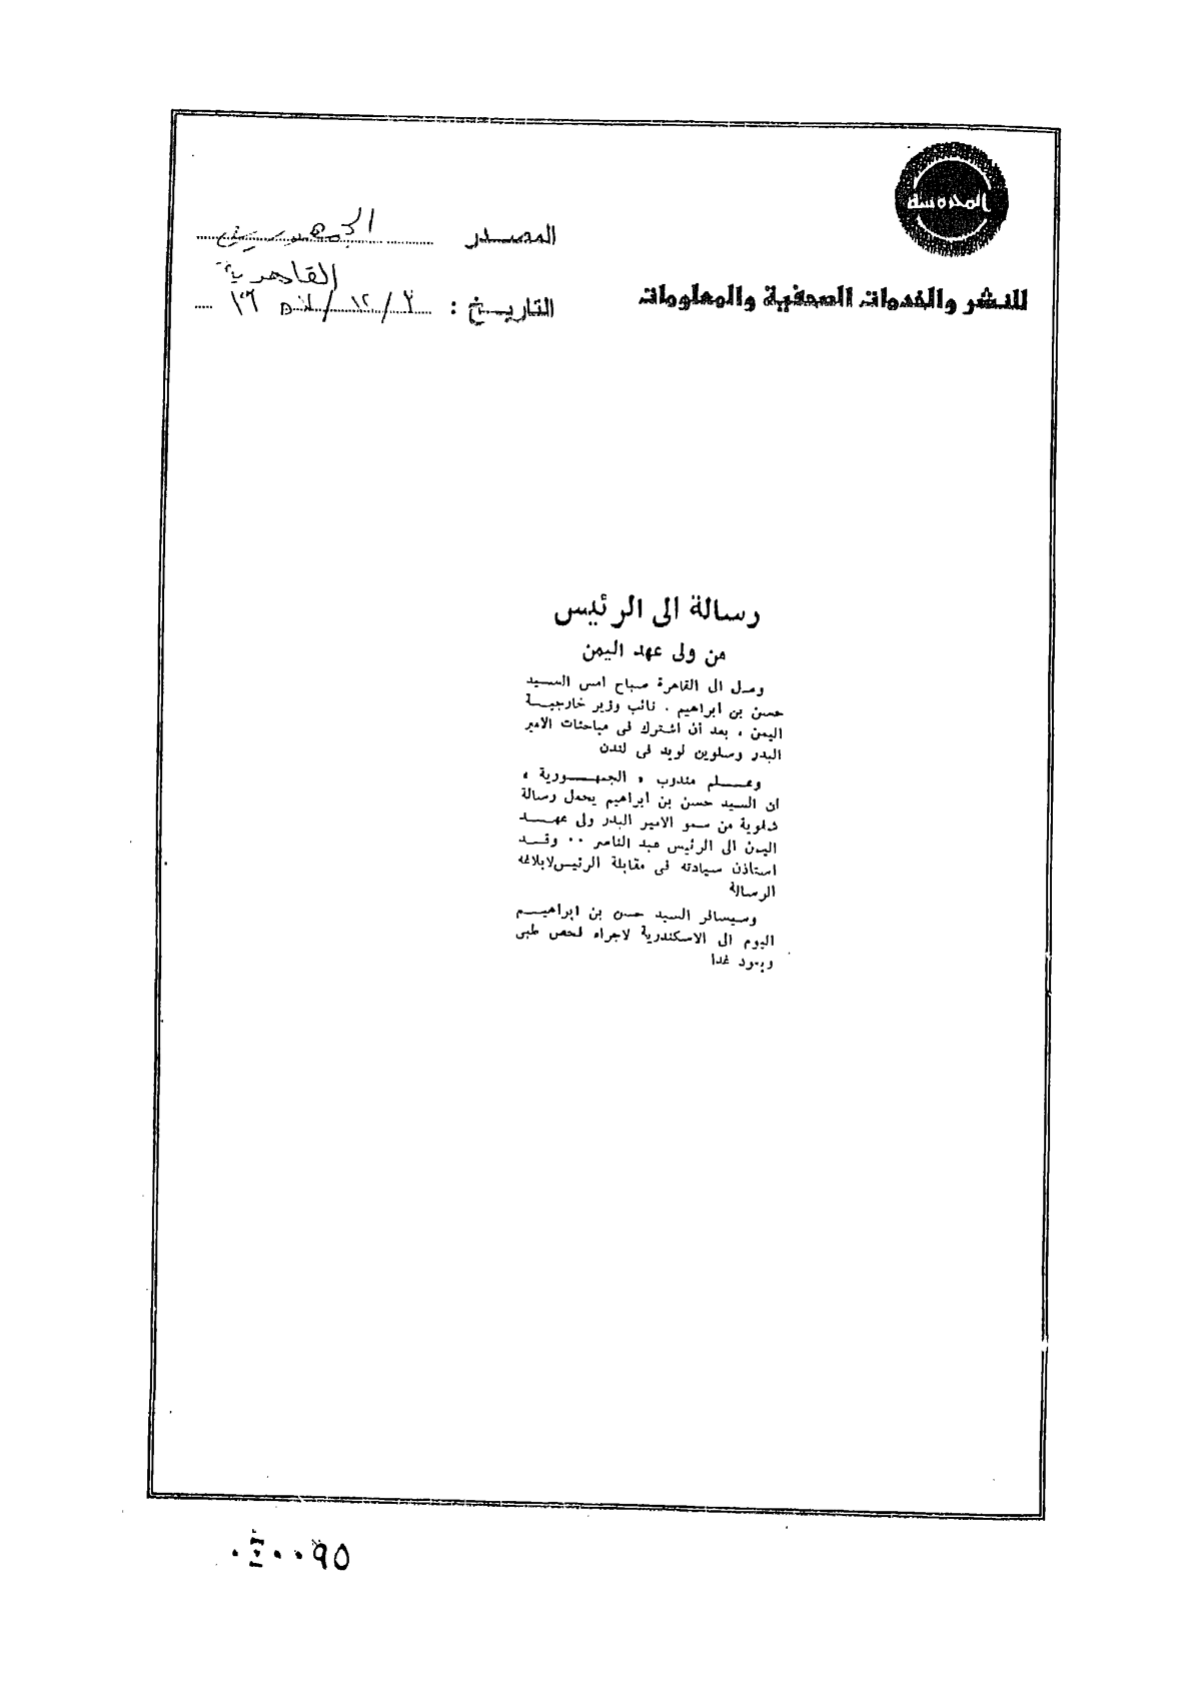 المحروسة
للنشر والخدمات الصحفية والمعلومات
المصدر الجمهورية
القاهرية
التاريخ :
رسالة الى الرئيس
من ولى عهد اليمن
وصل الى القاهرة صباح امس السيد
حسن بن ابراهيم ، نائب وزير خارجيـة
اليمن ، بعد أن اشترك فى مباحثات الامير
البدر وسلوين لويد فى لندن
وعـــلم مندوب « الجمهـــورية »
ان السيد حسن بن ابراهيم يحمل رسالة
شفوية من سمو الامير البدر ولى عهـــد
اليمن الى الرئيس عبد الناصر ٠٠ وقـــد
استاذن سيادته فى مقابلة الرئيس لابلاغه
الرسالة
وسيسافر السيد حسن بن ابراهيـــم
اليوم الى الاسكندرية لاجراء فحص طبى
ويعود غدا